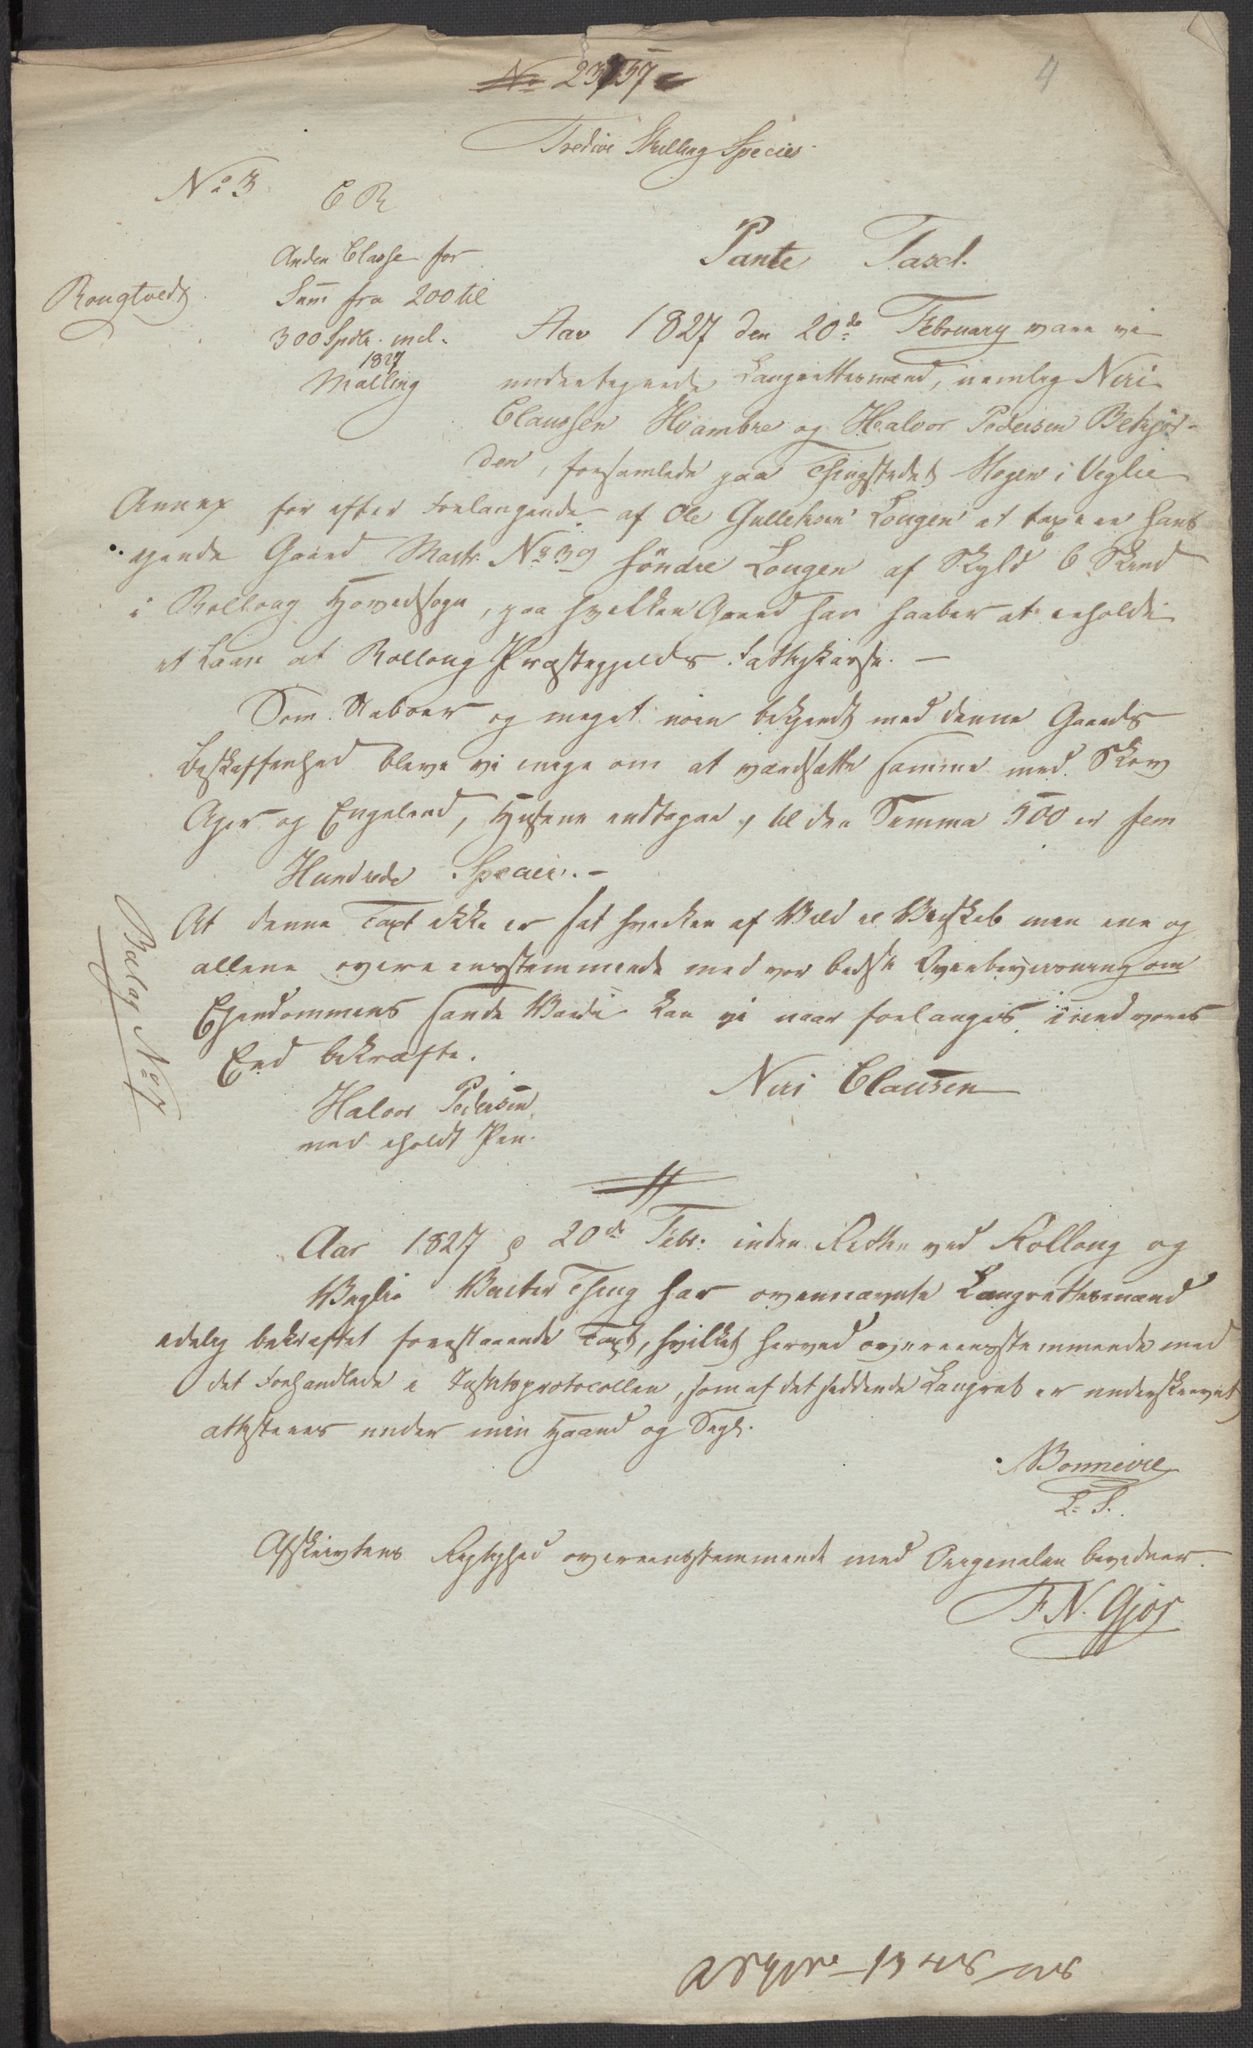 No 23757
4
Tredive Skilling Species
No 3
C R
Anden Classe for
Sum fra 200 til
300 Spdlr. incl.
1827
Malling
Rougtvedt
Pante Taxt.
Aar 1827 den 20de February vare vi
undertegnede Laugrettesmænd, nemlig Neri
Claussen Hvambre og Halvor Pedersen Bekjor-
den, forsamlede paa Thingstedet Mogen i Veglie
Annex for efter Forlangende af Ole Gulleksen Lougen at taxere hans
ejende Gaard Matr: No 39 søndre Lougen af Skyld 6 Skind
i Rolloug Hovedsogn, paa hvilken Gaard han haaber at erholde
et Laan af Rolloug Præstegjelds Fattigkasse. —
Som Naboer og meget nøie bekjendt med denne Gaards
Beskaffenhed bleve vi enige om at værdsætte samme med Skov
Ager og Engeland, Husene undtagne, til den Summa 500 er fem
Hundrede Specier. —
At denne Taxt ikke er sat hverken af Vild el Venskab men ene og
allene overeensstemmende med vor bedste Overbeviisning om
Ejendommens sande Værdi kan vi naar forlanges med vores
Eed bekræfte.
Neri Clausen
Halvor Pedersen
med iholdt Pen.
Balag No 7
Aar 1827 d 20de Febr: inden Retten ved Rolloug og
Veglie Vinter Thing har ovennævnte Laugrettesmænd
edelig bekræftet forestaaende Taxt, hvilket herved overeensstemmende med
det Forhandlede i Justitsprotocollen, som af det siddende Laugret er underskrevet,
attesteres under min Haand og Segl.
NBonnevie
L. S.
Afskrivtens Rigtighed overeensstemmende med Originalen bevidner.
F N. Gjør